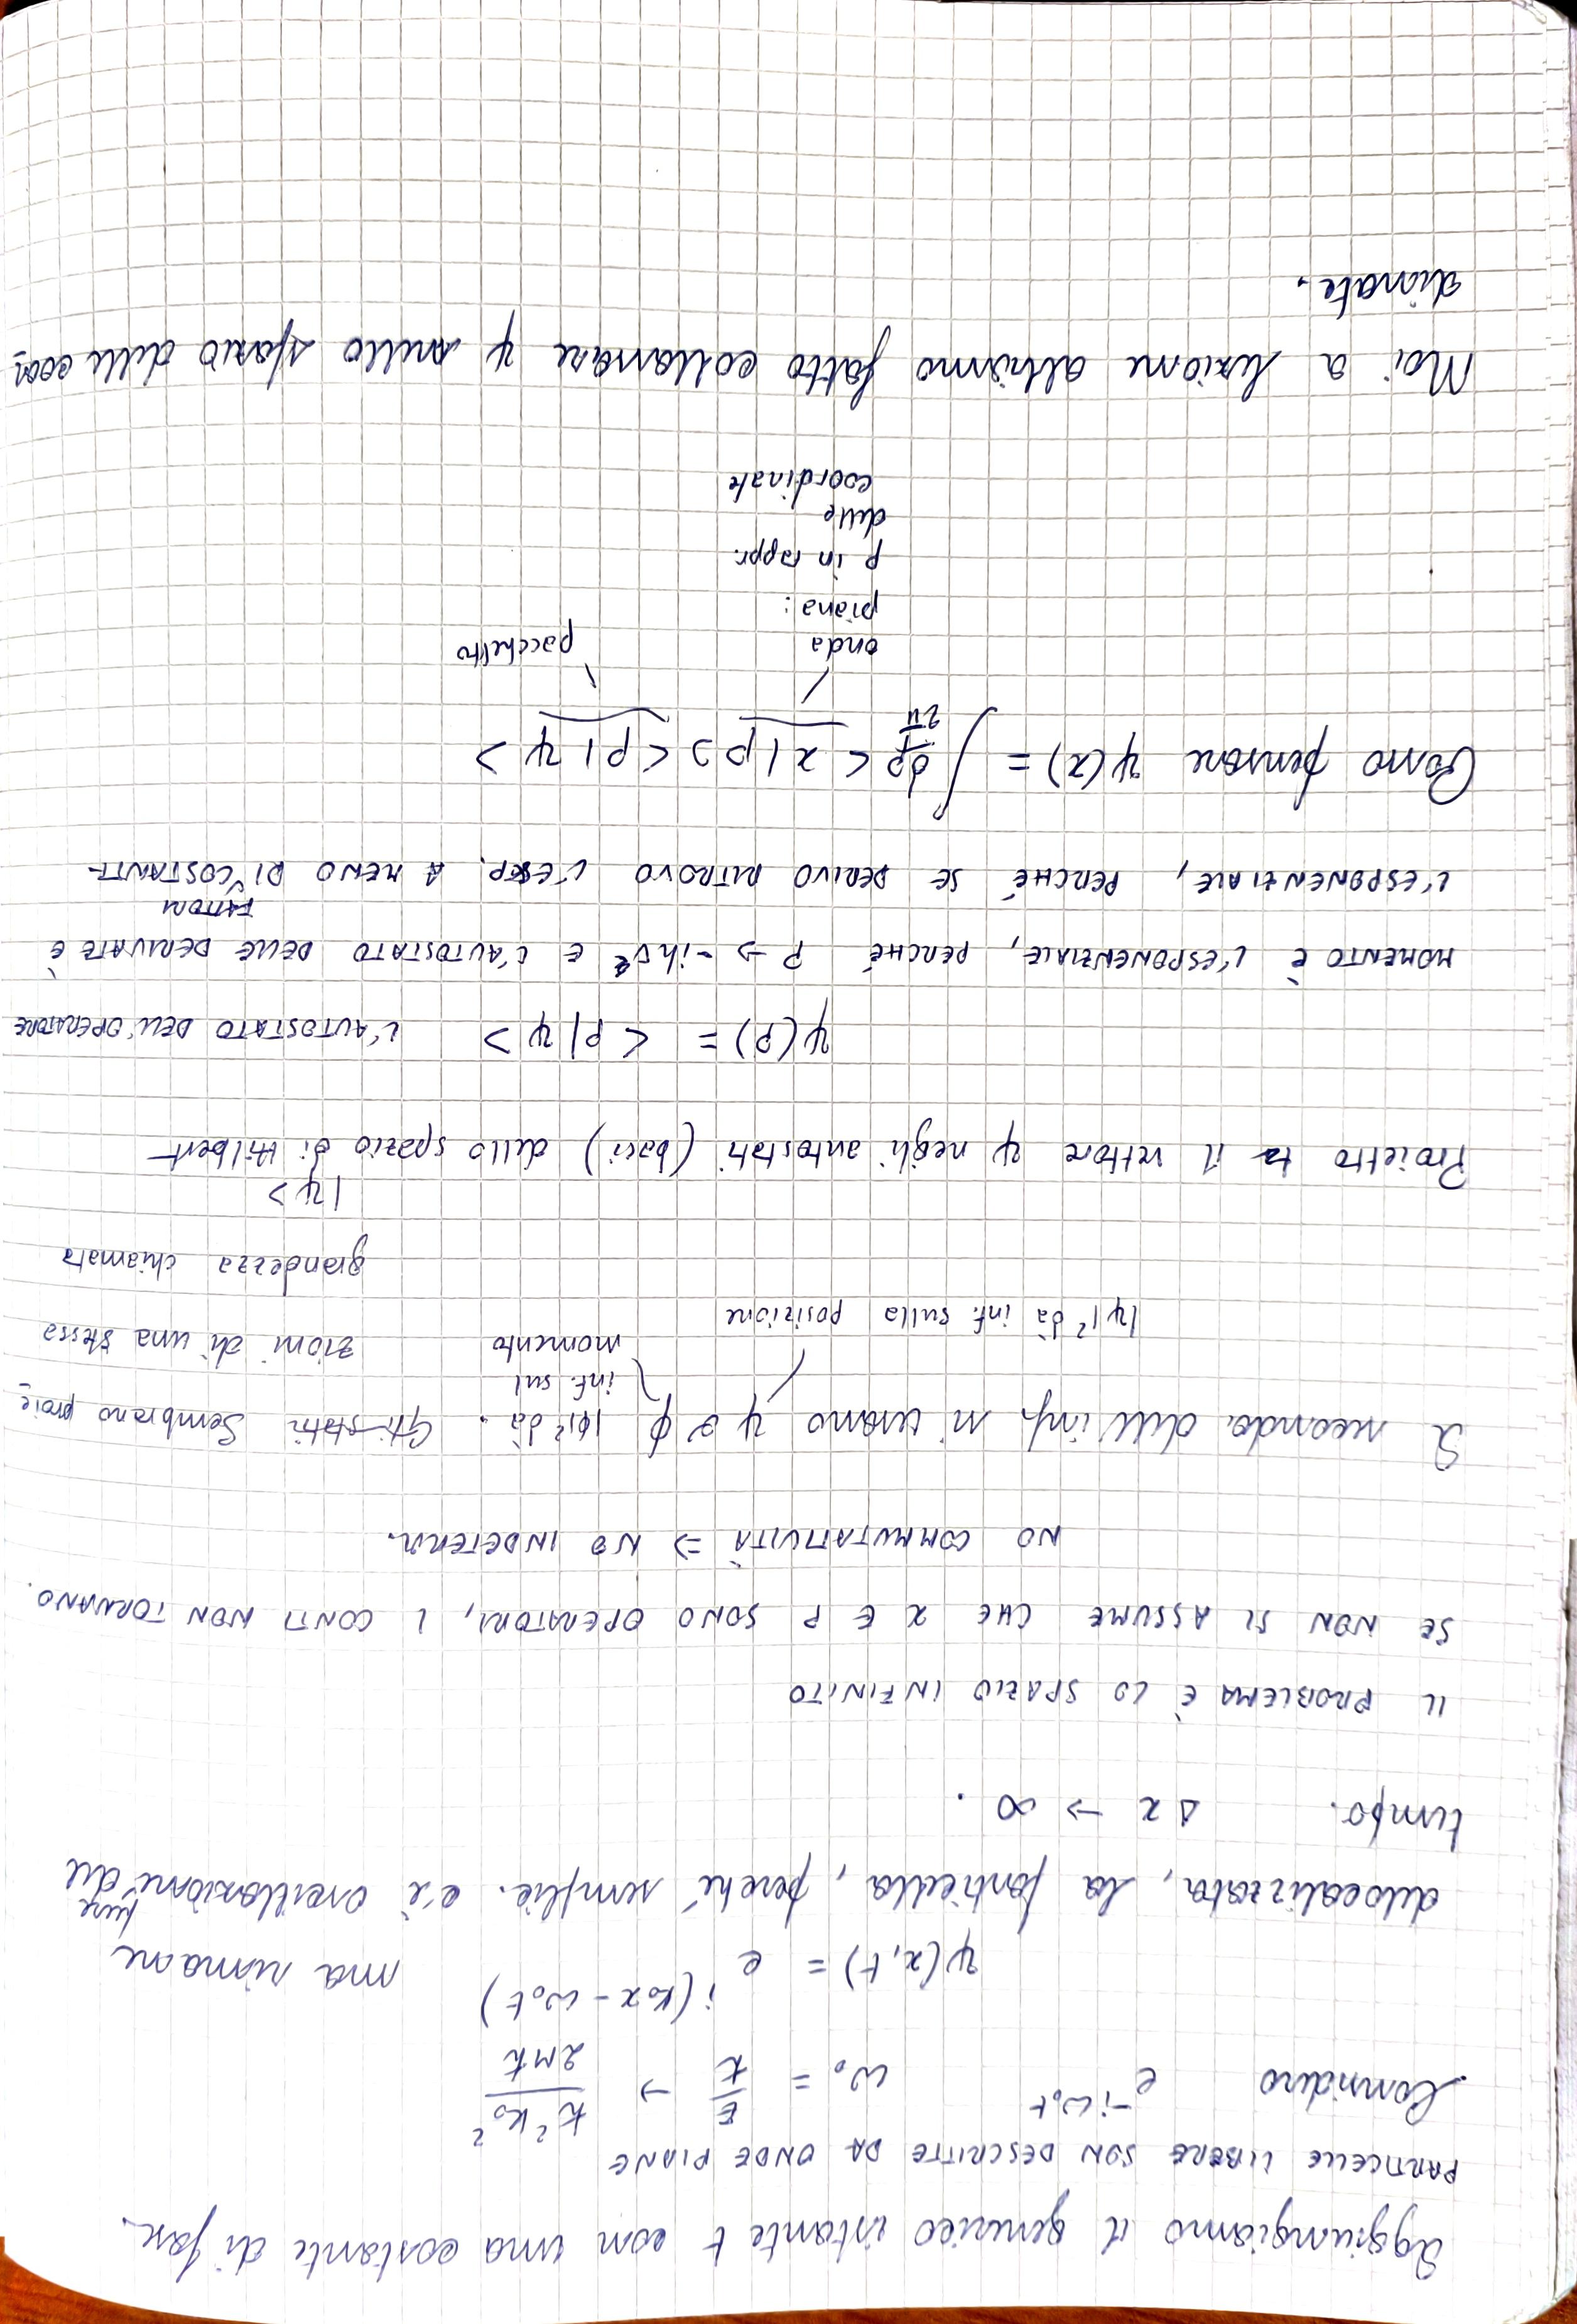 Aggiungiamo il generico istante t con una costante di fase.
PARTICELLE LIBERE SON DESCRITTE DA ONDE PIANE
Considero e^{-iω₀t} ω₀ = E/ħ → ħ²k₀²/2Mħ
ψ(x,t) = e^{i(k₀x - ω₀t)} ma rimane
delocalizzata, la particella, perché semplic. c'è oscillazione pure del
tempo. Δx → ∞.
IL PROBLEMA È LO SPAZIO INFINITO
SE NON SI ASSUME CHE x E P SONO OPERATORI, I CONTI NON TORNANO.
NO COMMUTATIVITÀ ⇒ NO INDETERM.
A seconda dell'inf. si usano ψ o ϕ |ϕ|² dà . Gli stati Sembrano proie
inf. sul
momento
zioni di una stessa
|ψ|² dà inf. sulla posizione
grandezza chiamata
|ψ>
Proietto il vettore ψ negli autostati (basi) dello spazio di Hilbert
ψ(p) = <p|ψ> L'AUTOSTATO DELL'OPERATORE
MOMENTO È L'ESPONENZIALE, PERCHÉ P → -iħ∇ E L'AUTOSTATO DELLE DERIVATE È
L'ESPONENZIALE, PERCHÉ SE DERIVO RITROVO L'ESP. A MENO DI FATTORI COSTANTI
Posso pensare ψ(x) = ∫ dp/2π <x|p> <p|ψ>
onda
piana:
p in rappr.
delle
coordinate
pacchetto
Noi a lezione abbiamo fatto collassare ψ nello spazio delle coor
dinate.